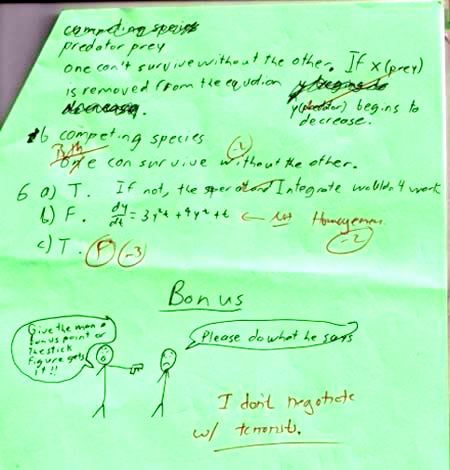 competing species
predator prey
one can't survive without the other. If x(prey)
is removed from the equation
decreasing.
y(predator) begins to
decrease.
b competing species
Both
One can survive without the other.
-2
6 a) T. If not, the Integrate wouldn't work
b) F. dy/dt = 3y²t + 4y² + t ← not Homogenous
-2
c) T. F -3
Bonus
Give the man a
bonus point or
the stick
figure gets
it!!
Please do what he says
I don't negotiate
w/ terrorists.